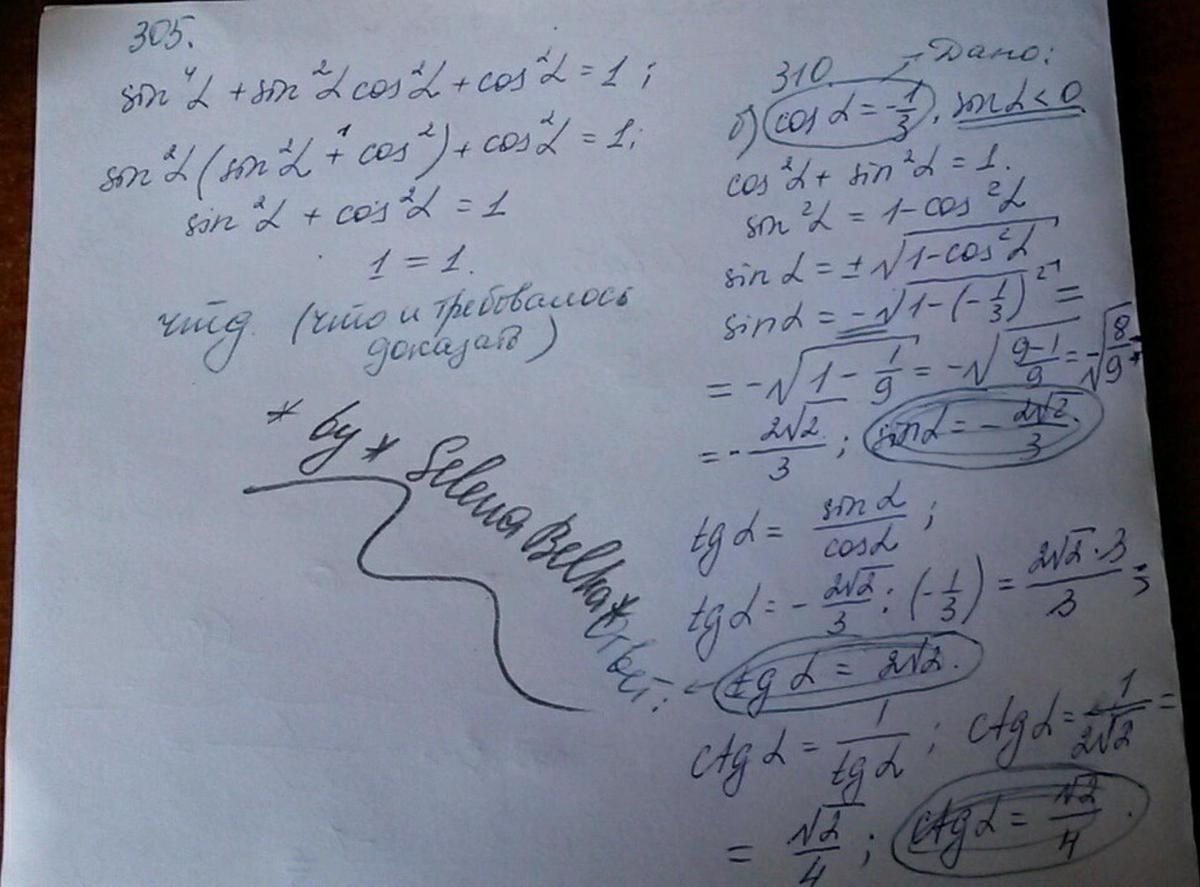 305.
sin⁴α + sin²α cos²α + cos²α = 1;
sin²α (sin²α + cos²) + cos²α = 1;
1
sin²α + cos²α = 1
1 = 1.
чтд. (что и требовалось
доказать)
* by * Selena Belka *
310 → Дано:
б) cos α = -1/3, sin α < 0
cos²α + sin²α = 1.
sin²α = 1 - cos²α
sin α = ±√(1-cos²α)
sin α = -√(1-(-1/3)²) =
= -√(1 - 1/9) = -√((9-1)/9) = -√(8/9) =
= -2√2/3; sin α = -2√2/3.
tg α = sin α/cos α;
tg α = -2√2/3 : (-1/3) = 2√2·3/3;
Ответ: ← tg α = 2√2.
ctg α = 1/tg α; ctg α = 1/2√2 =
= √2/4; ctg α = √2/4.